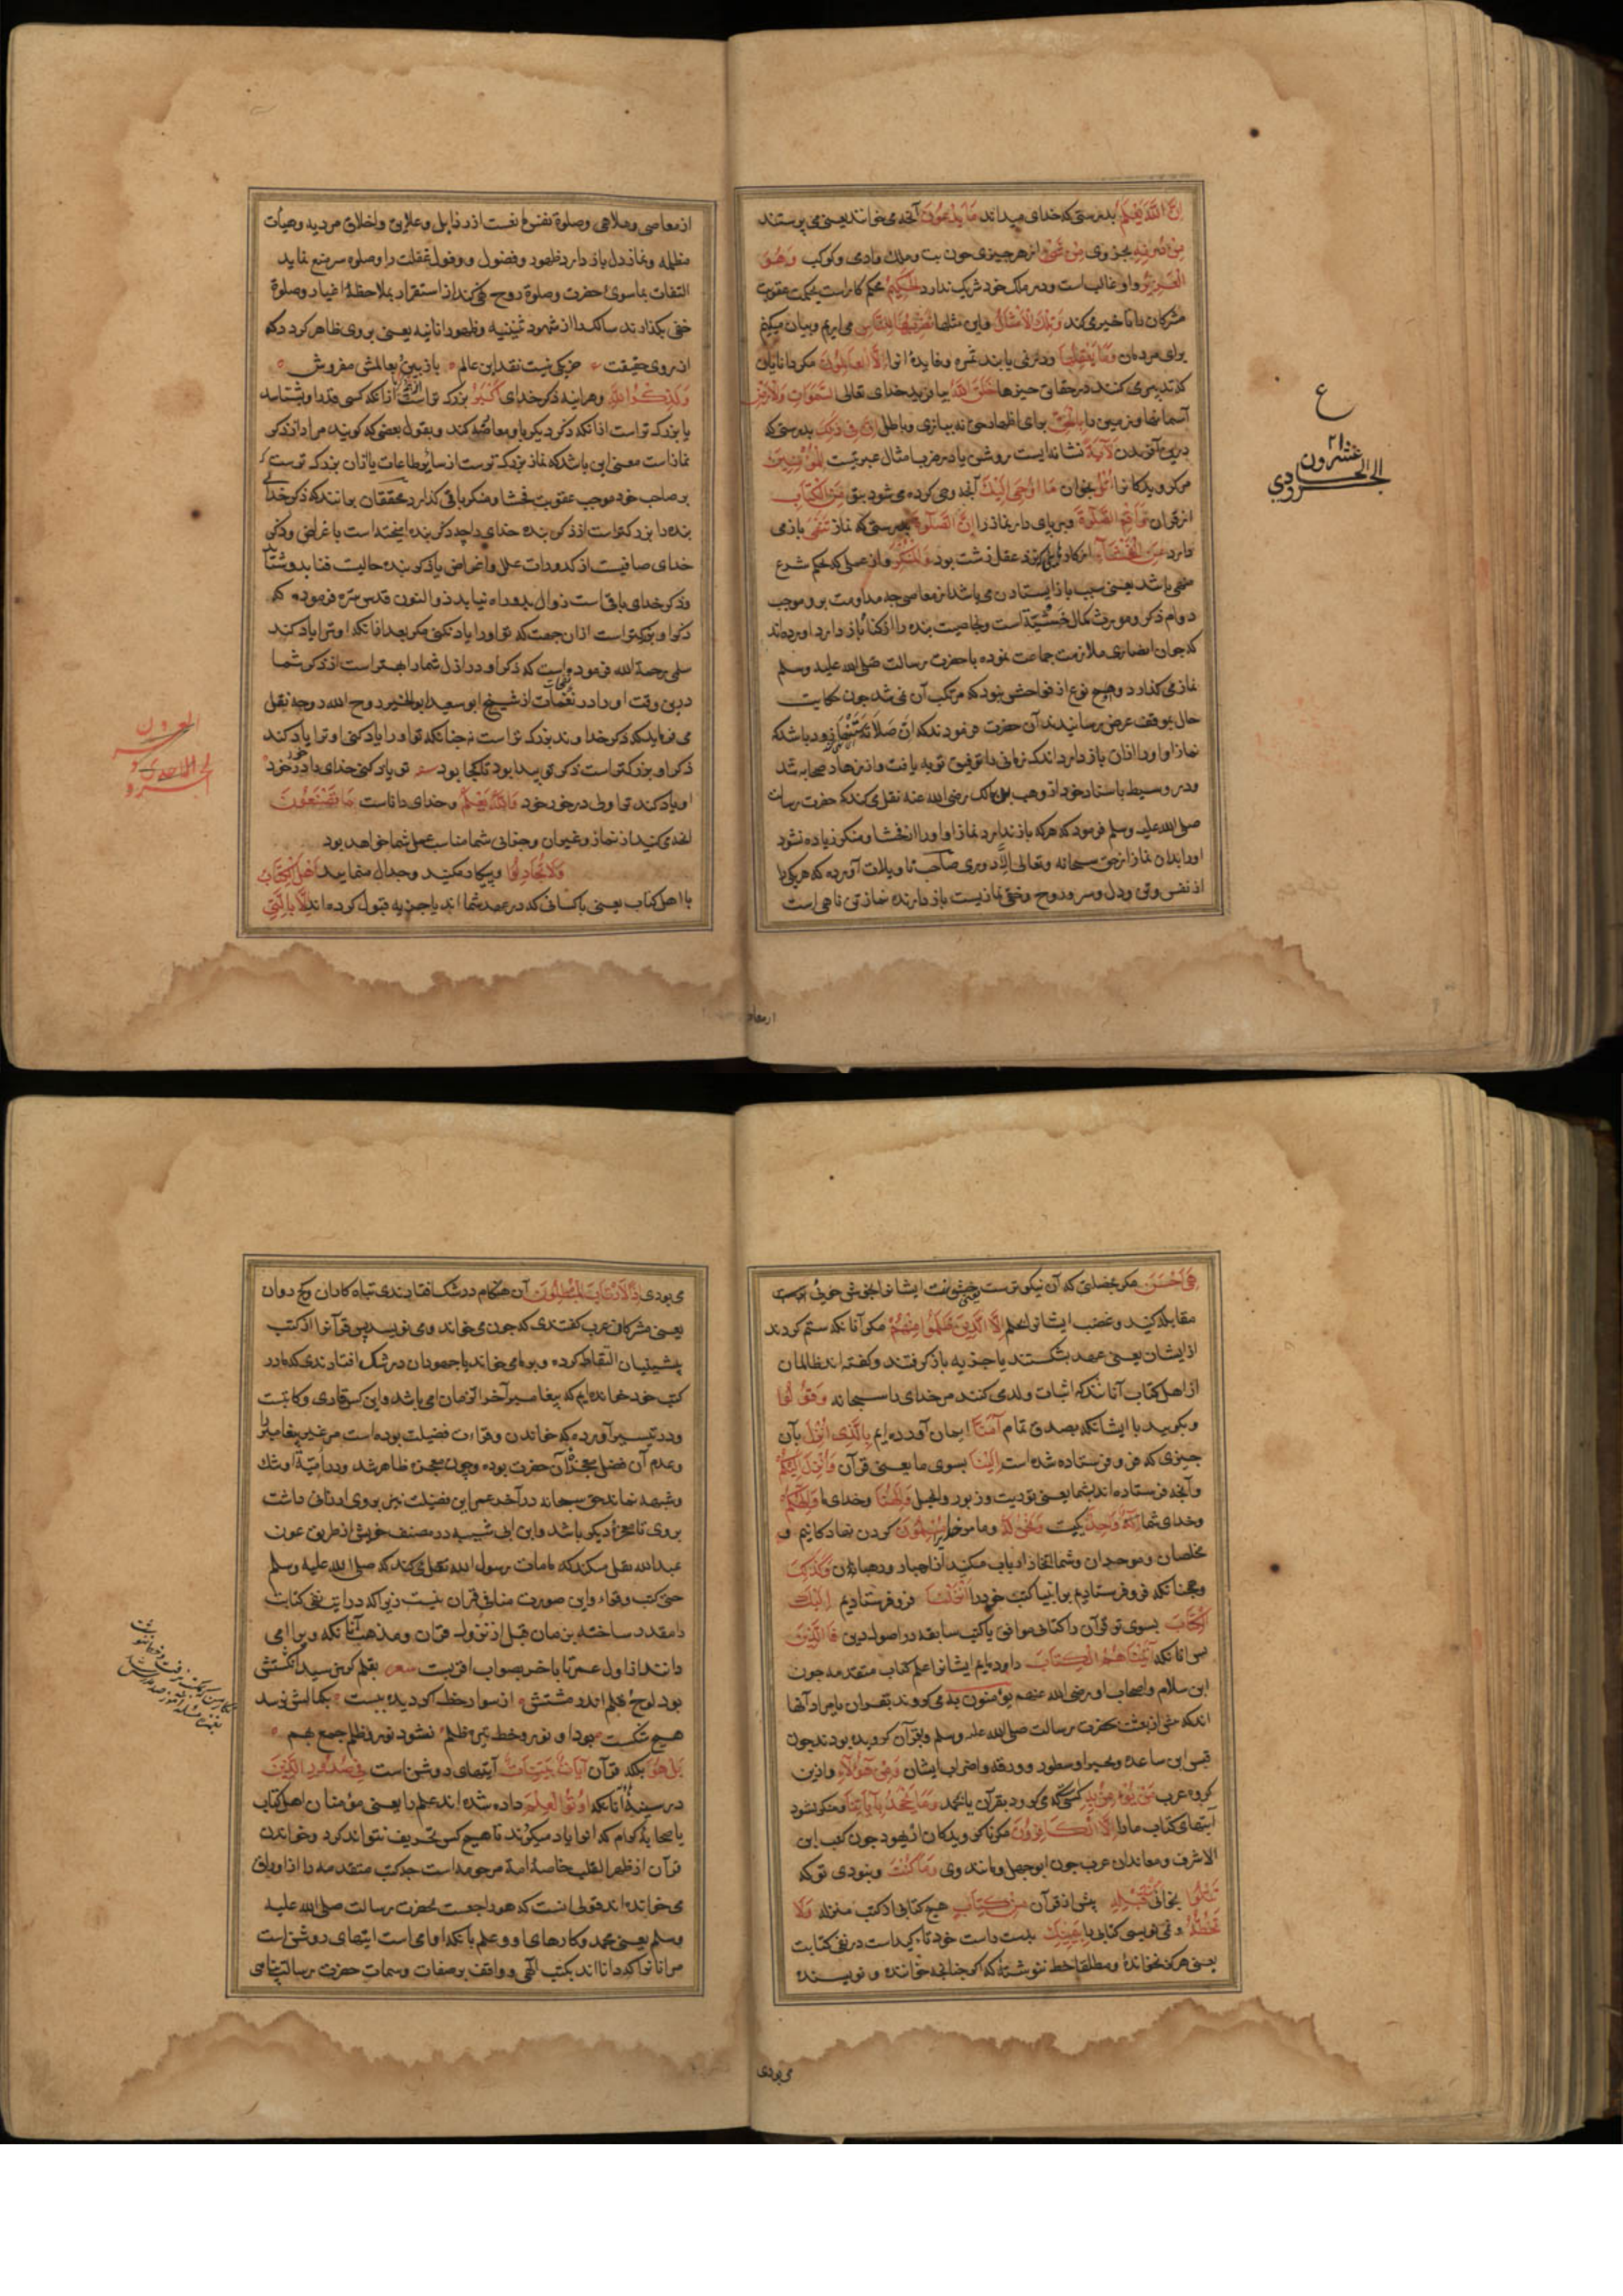 إن الله يعلم بدرستی که خدای میداند ما يدعون آنچه می خوانند یعنی می پرستند
من دونه بجز وی من شیء از هر چیزی چون بت و ملک و آدمی و کوکب وهو
العزيز و او غالب است و در ملک خود شریک ندارد الحكيم محکم کار است بحکمت عقوبت
مشرکان را تاخیر می کند وتلك الأمثال و این مثلها نضربها للناس می آریم و بیان میکنیم
برای مردمان وما يعقلها و در نمی یابند ثمره و فایده آنرا إلا العالمون مگر دانایان
که تدبر می کنند در حقایق چیزها خلق الله بیافرید خدای تعالی السموات والأرض
آسمانها و زمین را بالحق برای اظهار حق نه ببازی و باطل إن في ذلك بدرستی که
درین آفریدن لآية نشانه ایست روشن للمؤمنين
مر گرویدگانرا اتل بخوان ما أوحي إليك آنچه وحی کرده می شود بتو من الكتاب
از قرآن وأقم الصلوة و بر پای دار نماز را إن الصلوة بدرستی که نماز تنهى باز می
دارد عن الفحشاء از کاری که نزد عقل زشت بود والمنكر و از عملی که بحکم شرع
منهی باشد یعنی سبب باز ایستادن می باشد از معاصی چه مداومت برو موجب
دوام ذکر و مورث کمال خشیة است و بخاصیت بنده را از گناه باز دارد آورده اند
که جوان انصاری ملازمت جماعت نموده با حضرت رسالت صلی الله علیه وسلم
نماز می گذارد و هیچ نوع از فواحش نبود که مرتکب آن نمی شد چون حکایت
حال بموقف عرض رسانیدند آن حضرت فرمودند که ان صلاته تنهاه زود باشد که
نماز او او را از آن باز دارد اندک زمانی را توفیق توبه یافت و از زهاد صحابه شد
و در وسیط باسناد خود از وهب بن مالک رضی الله عنه نقل می کند که حضرت رسالت
صلی الله علیه وسلم فرمود که هر که باز ندارد نماز او او را از فحشا و منکر زیاده نشود
او را بدان نماز از حق سبحانه و تعالی الا دوری صاحب تاویلات آورده که هر یکی را
از نفس و تن و دل و سر و روح و خفی نمازیست باز دارنده نماز تن ناهی است
ع
٢١
از معاصی و ملاهی و صلوة نفس مانعست از رذایل و علایق و اخلاق مردیه و هیأت
مظلمه و نماز دل باز دارد ظهور و فضول و وفول غفلت را و صلوه سر منع نماید
التفات بماسوی حضرت و صلوة روح نهی کند از استقرار بملاحظهٔ اغیار و صلوة
خفی بگذارند سالک را از شهود ثنینیه و ظهور انانیه یعنی بروی ظاهر گردد که
از روی حقیقت جز یکی نیست نقد این عالم باز بین و بعالمش مفروش
ولذكر الله و هر آینه ذکر خدای أكبر بزرگ تر است از آنکه کسی قدر او بشناسد
یا بزرگ تر است از آنکه ذکر دیگر با او معاوضه کند و بقول بعضی که گویند مراد از ذکر
نماز است معنی این باشد که نماز بزرگ ترست از سایر طاعات
بر صاحب خود موجب عقوبت فحشا و منکر باقی گذارد محققان برانند که ذکر خدای
بنده را بزرگتر است از ذکر بنده خدای را چه ذکر بنده آمیخته است با غراض و ذکر
خدای صافیست از کدورات علل و اغراض یا ذکر بنده حالیست فنا بدو شتابد
و ذکر خدای باقی است زوال بدو راه نیابد ذوالنون قدس سره فرموده که
ذکر او بزرگتر است از آن جهت که تو او را یاد نکنی مگر بعد از آنکه او ترا یاد کند
سلمی رحمة الله فرموده است که ذکر او در ازل شما را بهتر است از ذکر شما
درین وقت او را در نفحات از شیخ ابو سعید ابوالخیر روح الله روحه نقل
می فرماید که ذکر خداوند بزرگ تر است نه چنانکه تو او را یاد کنی او ترا یاد کند
ذکر او بزرگتر است ذکر تو پیدا بود تا کجا بود تو یاد کنی خدای را در خود خود
او یاد کند ترا ولی در خور خود والله يعلم و خدای داناست ما تصنعون
آنچه می کنید از نماز و غیر آن و جزای شما مناسب عمل شما خواهد بود
ولا تجادلوا و پیکار مکنید و جدال منمایید أهل الكتاب
با اهل کتاب یعنی با کسانی که در عهد شما اند یا جزیه قبول کرده اند إلا بالتي
از معاصی
هي أحسن مگر بخصلتی که آن نیکوترست یعنی خشونت ایشانرا بخوش خویی
مقابله کنید و غضب ایشانرا بحلم إلا الذين ظلموا منهم مگر آنانکه ستم کردند
از ایشان یعنی عهد بشکستند یا جزیه باز گرفتند و گفته اند ظالمان
از اهل کتاب آنانند که اثبات ولد می کنند مر خدای را سبحانه وقولوا
و بگویید با ایشان که بصدق تمام آمنا ایمان آورده ایم بالذي أنزل بآن
چیزی که فرو فرستاده شده است إلينا بسوی ما یعنی قرآن وأنزل إليكم
و آنچه فرستاده اند بشما یعنی توریت و زبور و انجیل وإلهنا و خدای ما وإلهكم
و خدای شما إله واحد یکیست ونحن له و ما مر خدایرا مسلمون گردن نهادگانیم و
مخلصان و موحدان و شما اتخاذ ارباب میکنید از احبار و رهبانان وكذلك
و همچنانکه فرو فرستادیم بر انبیا کتب خود را أنزلنا فرو فرستادیم إليك
الكتاب بسوی تو قرآن را کتابی موافق با کتب سابقه در اصول دین فالذين
پس آنانکه آتيناهم الكتاب داده ایم ایشانرا علم کتاب متقدمه چون
ابن سلام و اصحاب او رضی الله عنهم يؤمنون به می گروند بقرآن یا مراد آنها
اند که پیش از بعثت بحضرت رسالت صلی الله علیه وسلم و بقرآن گرویده بودند چون
قس ابن ساعده و بحیرا و نسطور و ورقه و اضراب ایشان ومن هؤلاء و ازین
گروه عرب من يؤمن به کسی که می گرود بقرآن یا بمحمد وما يجحد بآياتنا و منکر نشود
آیتهای کتاب ما را إلا الكافرون مگر ناگرویدگان از یهود چون کعب ابن
الاشرف و معاندان عرب چون ابو جهل و مانند وی وما كنت و نبودی تو که
تتلوا بخوانی من قبله پیش از قرآن من كتاب هیچ کتابی از کتب منزله ولا
تخطه و نمی نویسی کتابی بيمينك بدست راست خود تاکید است در نفی کتابت
یعنی هرگز نخوانده و مطلقا خط ننوشته که اگر چنانچه خواننده و نویسنده
می بودی إذا لارتاب المبطلون آن هنگام در شک افتادندی تباه کاران و کج روان
یعنی مشرکان عرب گفتندی که چون می خواند و می نویسد پس قرآن را از کتب
پیشینیان التقاط کرده و بر ما می خواند یا جهودان در شک افتادندی که ما در
کتب خود خوانده ایم که پیغامبر آخر الزمان امی باشد و این کس قاری و کاتبست
و در تیسیر آورده که خواندن و قراءت فضیلت بوده است مر غیر پیغامبر را
و عدم آن فضل معجزهٔ آن حضرت بوده و چون معجزه ظاهر شد و در امیة او شک
و شبهه نماند حق سبحانه در آخر عمر این فضیلت نیز بروی ارزانی داشت
بروی تا معجزهٔ دیگر باشد و ابن ابی شیبه در مصنف خویش از طریق عون
عبدالله نقل میکند که ما مات رسول الله صلی الله علیه وسلم
حتی کتب و قراء و این صورت منافی قرآن نیست زیرا که در آیت نفی کتابت
را مقدر ساخته بزمان قبل از نزول قرآن و مذهب آنانکه ویرا امی
دانند از اول عمر تا بآخر بصواب اقربست شعر بقلم گر نرسید انگشتش
بود لوح و قلم اندر مشتش از سواد خط اگر دیده ببست بکمالش نرسد
هیچ شکست بود او نور و خط تیره ظلم نشود نور و ظلم جمع بهم
بل هو بلکه قرآن آيات بينات آیتهای روشن است في صدور الذين
در سینهٔ آنانکه أوتوا العلم داده شده اند علم را یعنی مؤمنان اهل کتاب
یا صحابهٔ کرام که آنرا یاد میگیرند تا هیچ کس تحریف نتواند کرد و خواندن
قرآن از ظهر القلب خاصهٔ امة مرحومه است چه کتب متقدمه را از اوراق
می خوانده اند قولی آنست که هو راجعست بحضرت رسالت صلی الله علیه
وسلم یعنی محمد و کارهای او و علم با آنکه او امی است آیتهای روشن است
مر آنانرا که دانا اند بکتب الهی و واقف بر صفات و سمات حضرت رسالت پناهی
می بودی